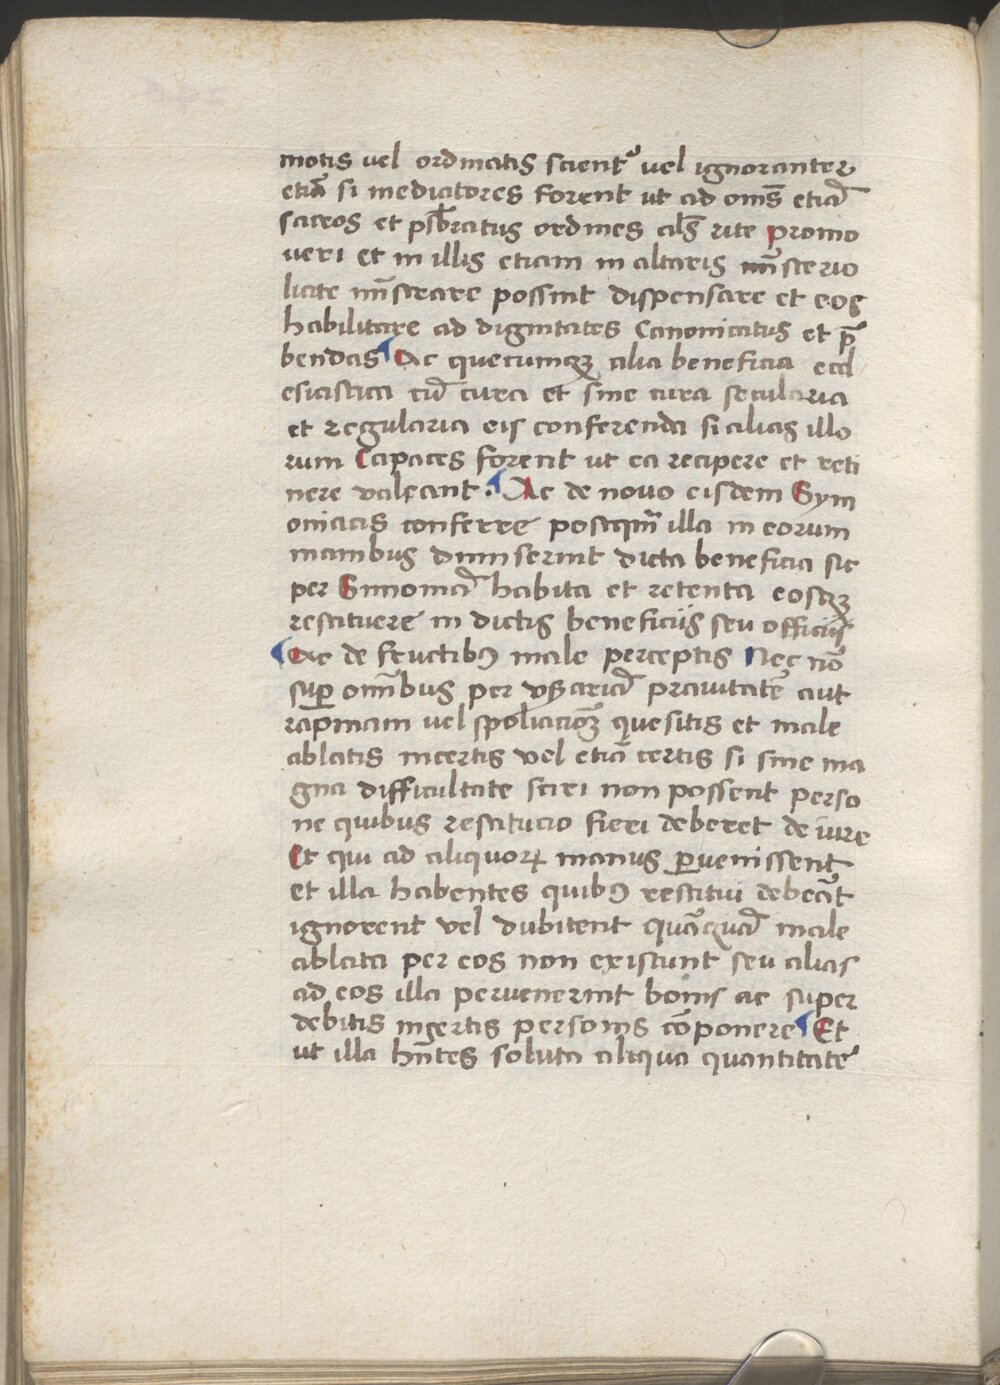 motis vel ordinatis scient̉ vel ignoranter
etiā si mediatores forent ut ad om̄s etiā
sacros et p̄sbr̄atus ordines al̄s rite promo
veri et in illis etiam in altaris mn̄sterio
licite mīstrare possint dispensare et eos
habilitare ad dignitates Canonicatus et p̄
bendas Ac quecumqꝫ alia beneficia eccl
esiastica cū cura et sine cura secularia
et regularia eis conferenda si alias illo
rum Capaces forent ut ea recipere et reti
nere valeant. Ac de novo eisdem Sym
oniacis conferre postqm̄ illa in eorum
manibus dimiserint dicta beneficia sic
per Simoniā habita et retenta eosqꝫ
restituere in dictis beneficiis seu officiis
Ac de fructibꝰ male perceptis Nec nō
suꝑ omībus per vsurariā pravitatē aut
rapinam vel spoliacionē quesitis et male
ablatis incertis vel etiā certis si sine ma
gna difficultate scirei non possent perso
ne quibus restitucio fieri deberet de iure
Et qui ad aliquoꝝ manus ꝑvenissent
et illa habentes quibꝰ restitui debeāt
ignorent vel dubitent quāquā male
ablata per eos non existunt seu alias
ad eos illa pervenerint bonis ac super
debitis incertis personis cōponere Et
ut illa hn̄tes soluta aliqua quantitate